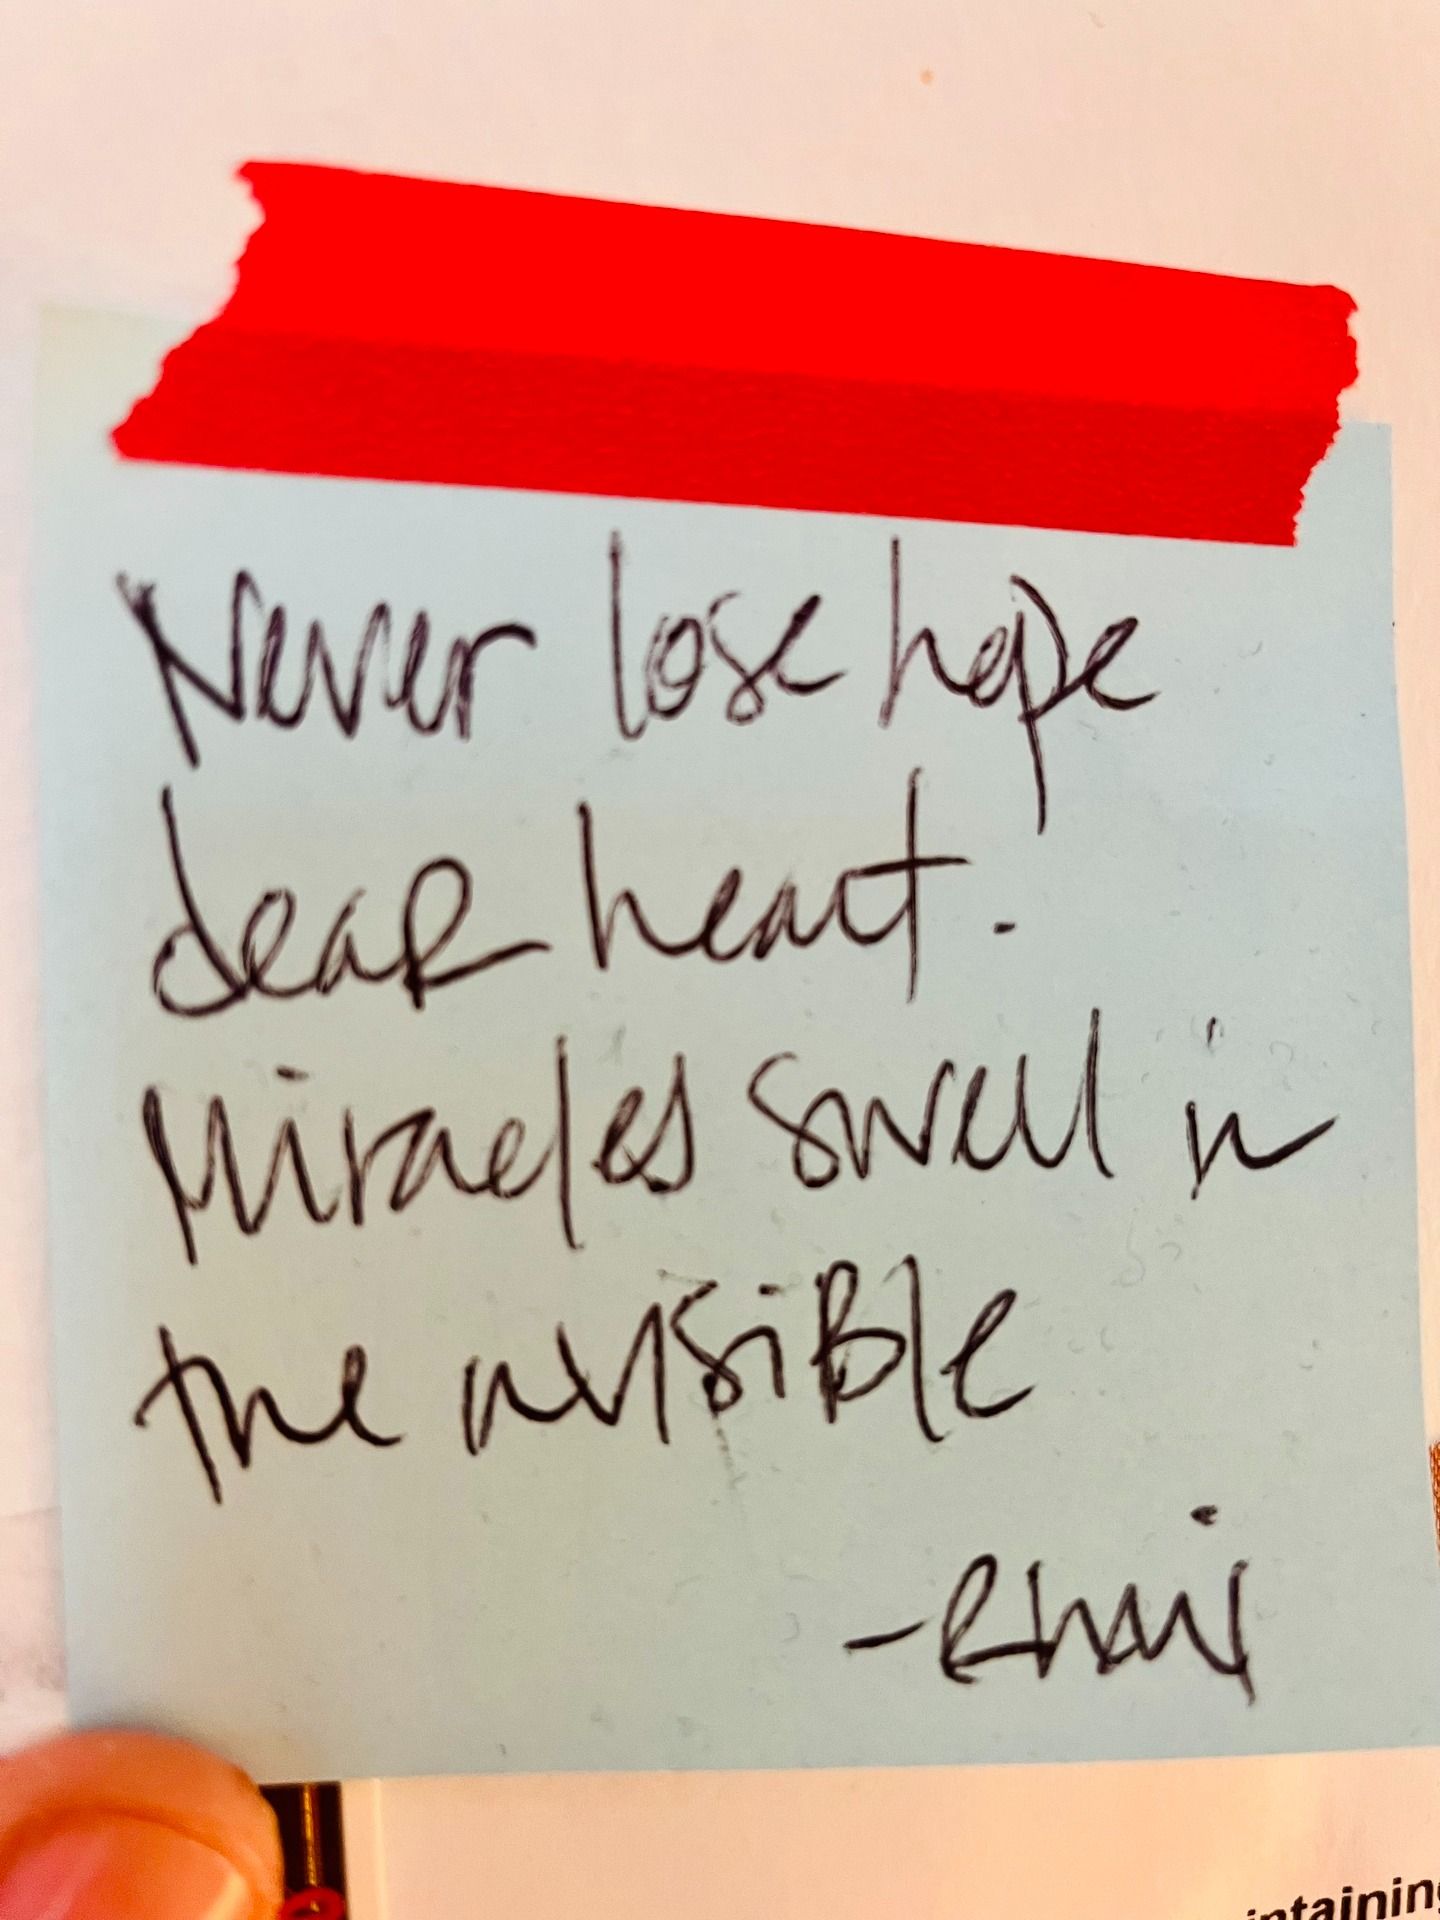 Never lose hope
dear heart.
Miracles swell in
the invisible
- Rumi
intaining